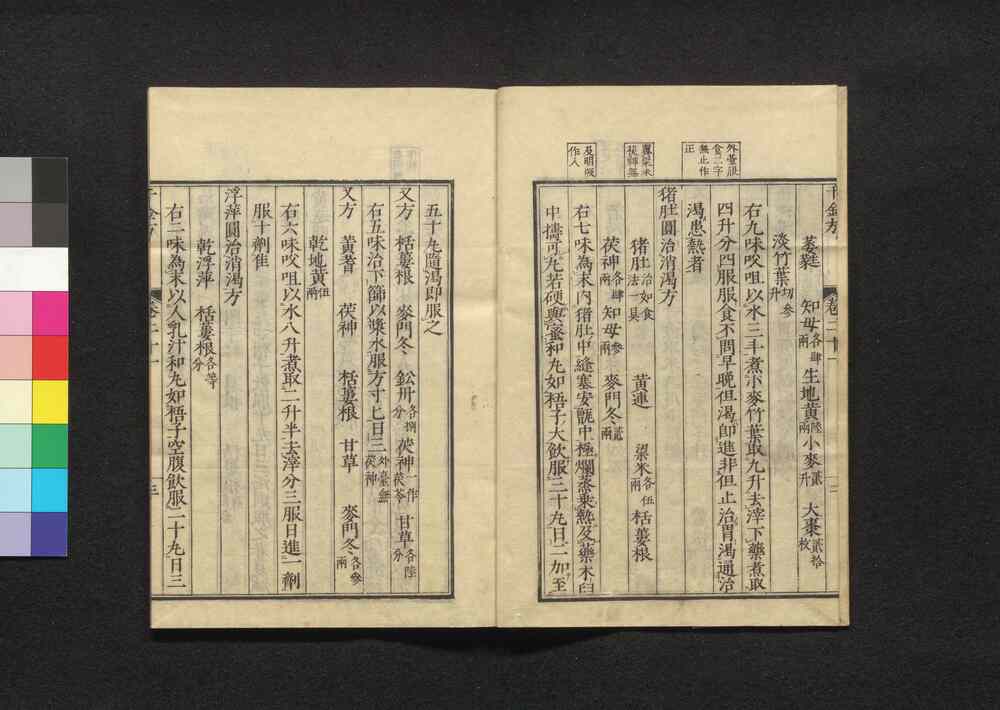 外臺服
食二字
無止作
正
粱米
茯神無
及明吸
作人
千金方 卷二十一
萎蕤 知母各肆兩 生地黃陸兩 小麥貳升 大棗貳拾枚
淡竹葉切參升
右九味㕮咀以水三斗煮小麥竹葉取九升去滓下藥煮取
四升分四服服食不問早晚但渴即進非但止治胃渴通治
渴患熱者
猪肚圓治消渴方
猪肚治如食法一具 黃連 粱米各伍兩 栝蔞根
茯神各肆兩 知母參兩 麥門冬貳兩
右七味為末內猪肚中縫塞安甑中極爛蒸乘熱及藥木臼
中擣可丸若硬與蜜和丸如梧子大飲服三十丸日二加至
五十丸隨渴即服之
又方 栝蔞根 麥門冬 鈆丹各捌分 茯神一作茯苓 甘草各陸分
右五味治下篩以漿水服方寸匕日三外臺無茯神
又方 黃耆 茯神 栝蔞根 甘草 麥門冬各參兩
乾地黃伍兩
右六味㕮咀以水八升煮取二升半去滓分三服日進一劑
服十劑佳
浮萍圓治消渴方
乾浮萍 栝蔞根各等分
右二味為末以人乳汁和丸如梧子空腹飲服二十丸日三